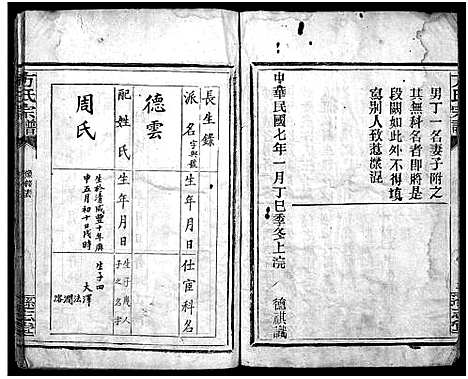 男丁一名妻子附之
其無科名者即將是
段闕如此外不得填
寫別人致愆淆混
中華民國七年一月丁巳季冬上浣
德祺識
方氏宗譜
長生錄
派名字與號
生年月日
仕宦科名
配姓氏
生年月日
生子幾人
子之名字
德雲
周氏
生於清咸豐十年庚
申五月初十日戌時
生子四
大澤
法
潤